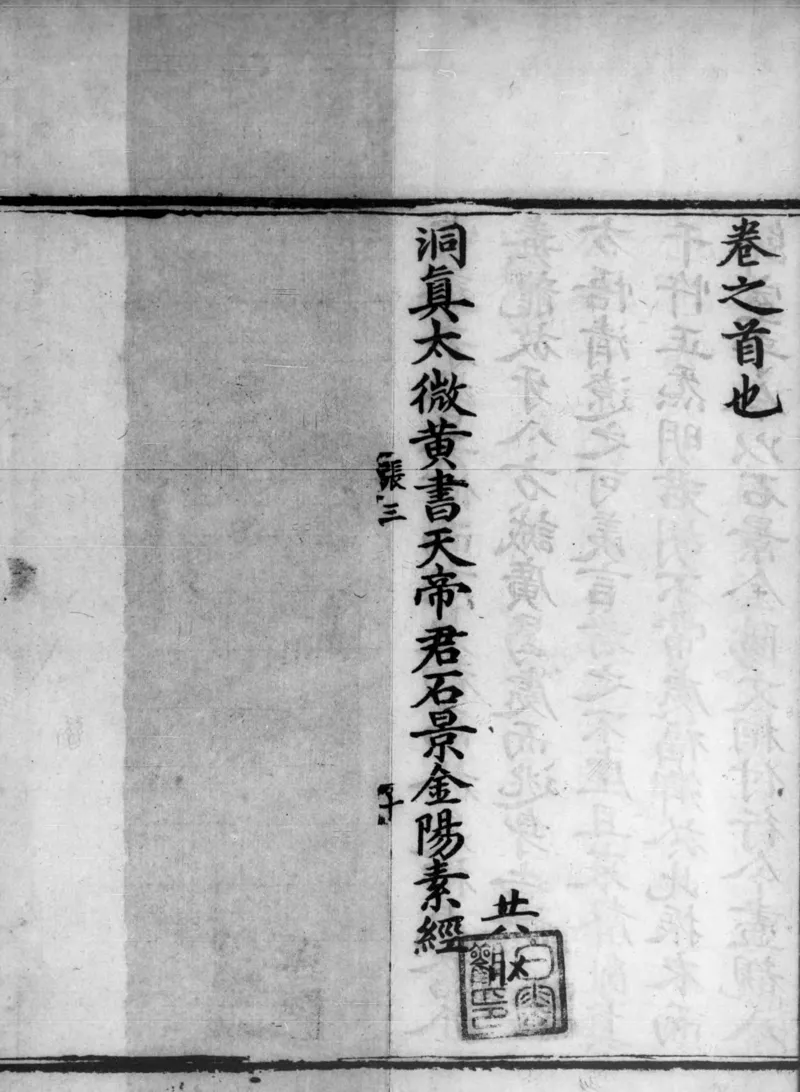 卷之首也
洞真太微黃書天帝君石景金陽素經
張三
十